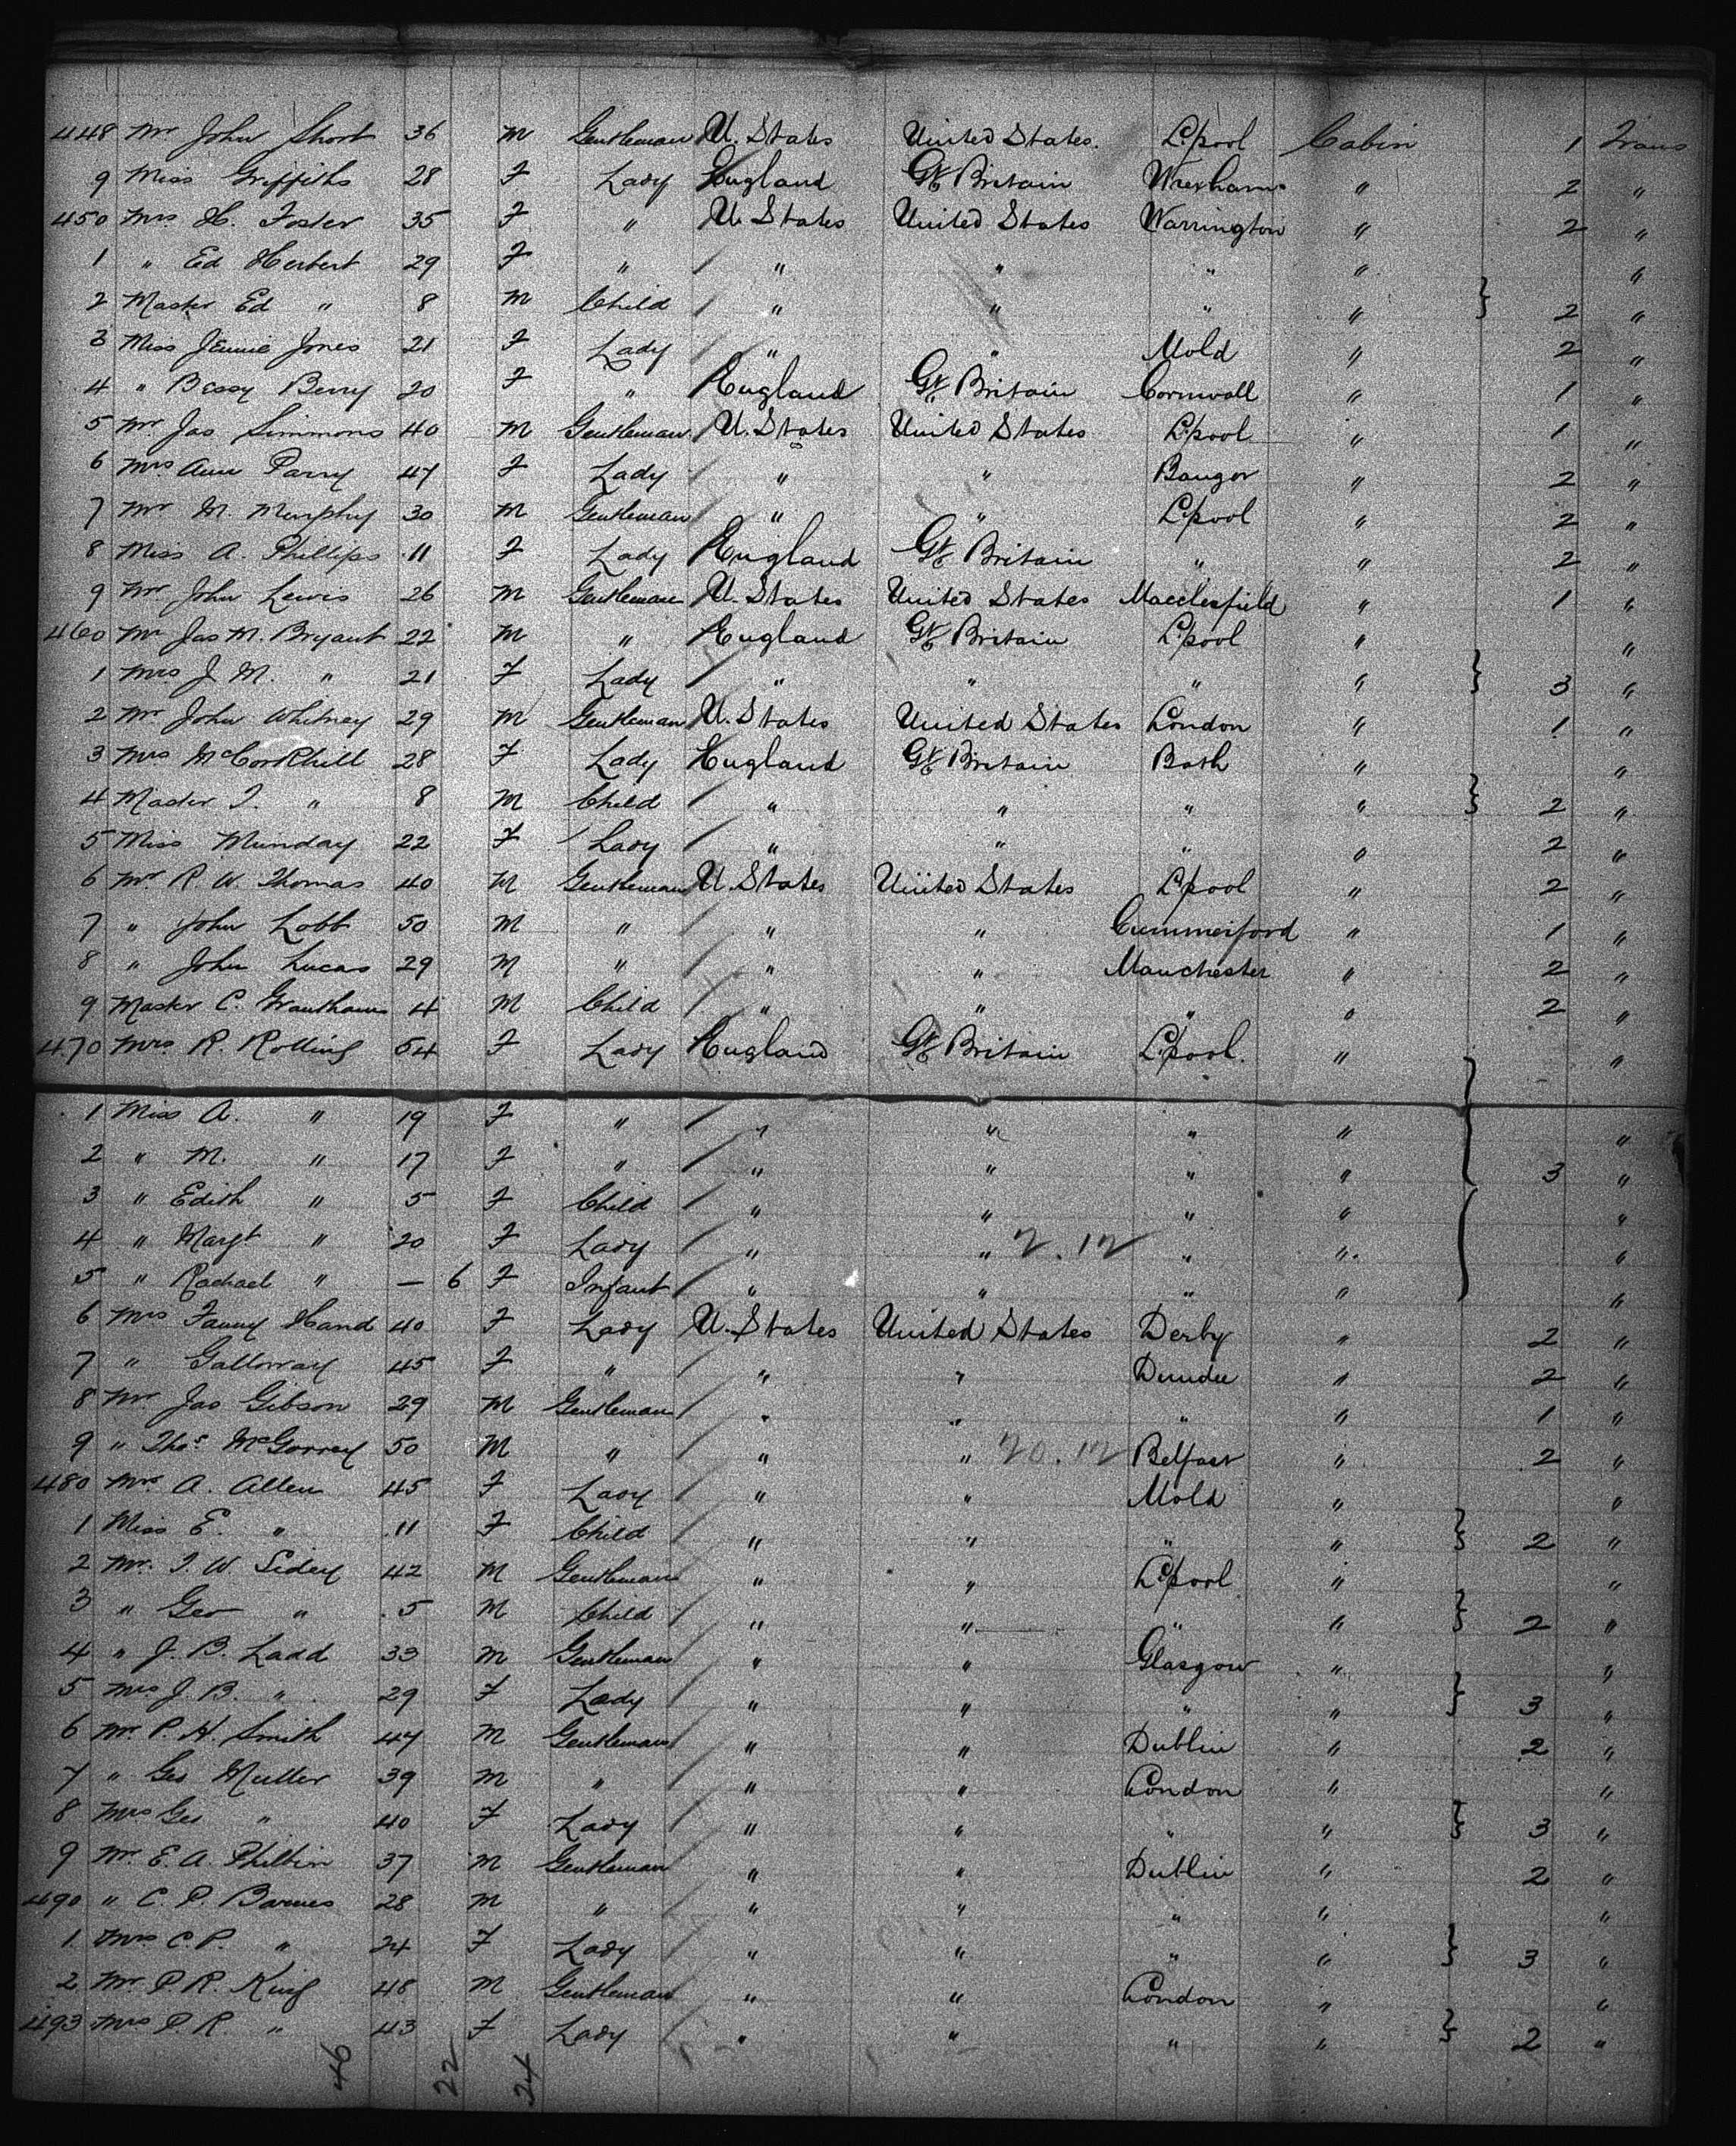 448 Mr John Short 36 M Gentleman U. States United States. L'pool Cabin 1 Trans
9 Miss Griffiths 28 F Lady England Gt Britain Wrexham " 2 "
450 Mrs H. Foster 35 F " U. States United States Warrington " 2 "
1 " Ed Herbert 29 F " " " " " "
2 Master Ed " 8 M Child " " " " } 2 "
3 Miss Jennie Jones 21 F Lady " " Mold " 2 "
4 " Bessy Berry 20 F " England Gt Britain Cornwall " 1 "
5 Mr Jas Simmons 40 M Gentleman U. States United States L'pool " 1 "
6 Mrs Ann Parry 47 F Lady " " Bangor " 2 "
7 Mr M. Murphy 30 M Gentleman " " L'pool " 2 "
8 Miss A. Phillips 11 F Lady England Gt Britain " " 2 "
9 Mr John Lewis 26 M Gentleman U. States United States Macclesfield " 1 "
460 Mr Jas M. Bryant 22 M " England Gt Britain L'pool " "
1 Mrs J. M. " 21 F Lady " " " " } 3 "
2 Mr John Whitney 29 M Gentleman U. States United States London " 1 "
3 Mrs McCorkhill 28 F Lady England Gt Britain Bath " "
4 Master J. " 8 M Child " " " " } 2 "
5 Miss Munday 22 F Lady " " " " 2 "
6 Mr R. W. Thomas 40 M Gentleman U. States United States L'pool " 2 "
7 " John Lobb 50 M " " " Cummerford " 1 "
8 " John Lucas 29 M " " " Manchester " 2 "
9 Master C. Grantham 4 M Child " " " " 2 "
470 Mrs R. Rolling 54 F Lady England Gt Britain L'pool. " "
1 Miss A. " 19 F " " " " " "
2 " M. " 17 F " " " " " } 3 "
3 " Edith " 5 F Child " " " " "
4 " Margt " 20 F Lady " " 2.12 " " "
5 " Rachael " — 6 F Infant " " " " "
6 Mrs Fanny Hand 40 F Lady U. States United States Derby " 2 "
7 " Galloway 45 F " " " Dundee " 2 "
8 Mr Jas Gibson 29 M Gentleman " " " " 1 "
9 " Thos McGorrey 50 M " " " 20.12 Belfast " 2 "
480 Mrs A. Allen 45 F Lady " " Mold " "
1 Miss E. " 11 F Child " " " " } 2 "
2 Mr. J. W. Sidey 42 M Gentleman " " L'pool " "
3 " Geo " 5 M Child " " " " } 2 "
4 " J. B. Ladd 33 M Gentleman " " Glasgow " "
5 Mrs J. B. " 29 F Lady " " " " } 3 "
6 Mr. P. H. Smith 47 M Gentleman " " Dublin " 2 "
7 " Geo Muller 39 M " " " London " "
8 Mrs Geo " 40 F Lady " " " " } 3 "
9 Mr. E. A. Philbin 37 M Gentleman " " Dublin " 2 "
490 " C. P. Barnes 28 M " " " " " "
1 Mrs C. P. " 24 F Lady " " " " } 3 "
2 Mr. P. R. King 48 M Gentleman " " London " "
493 Mrs P. R. " 43 F Lady " " " " } 2 "
46 22 24